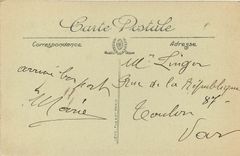 Carte Postale
Correspondance
Adresse
arrivé bon port
Marie
Mr Linger
Rue de la République
87
Toulon
Var